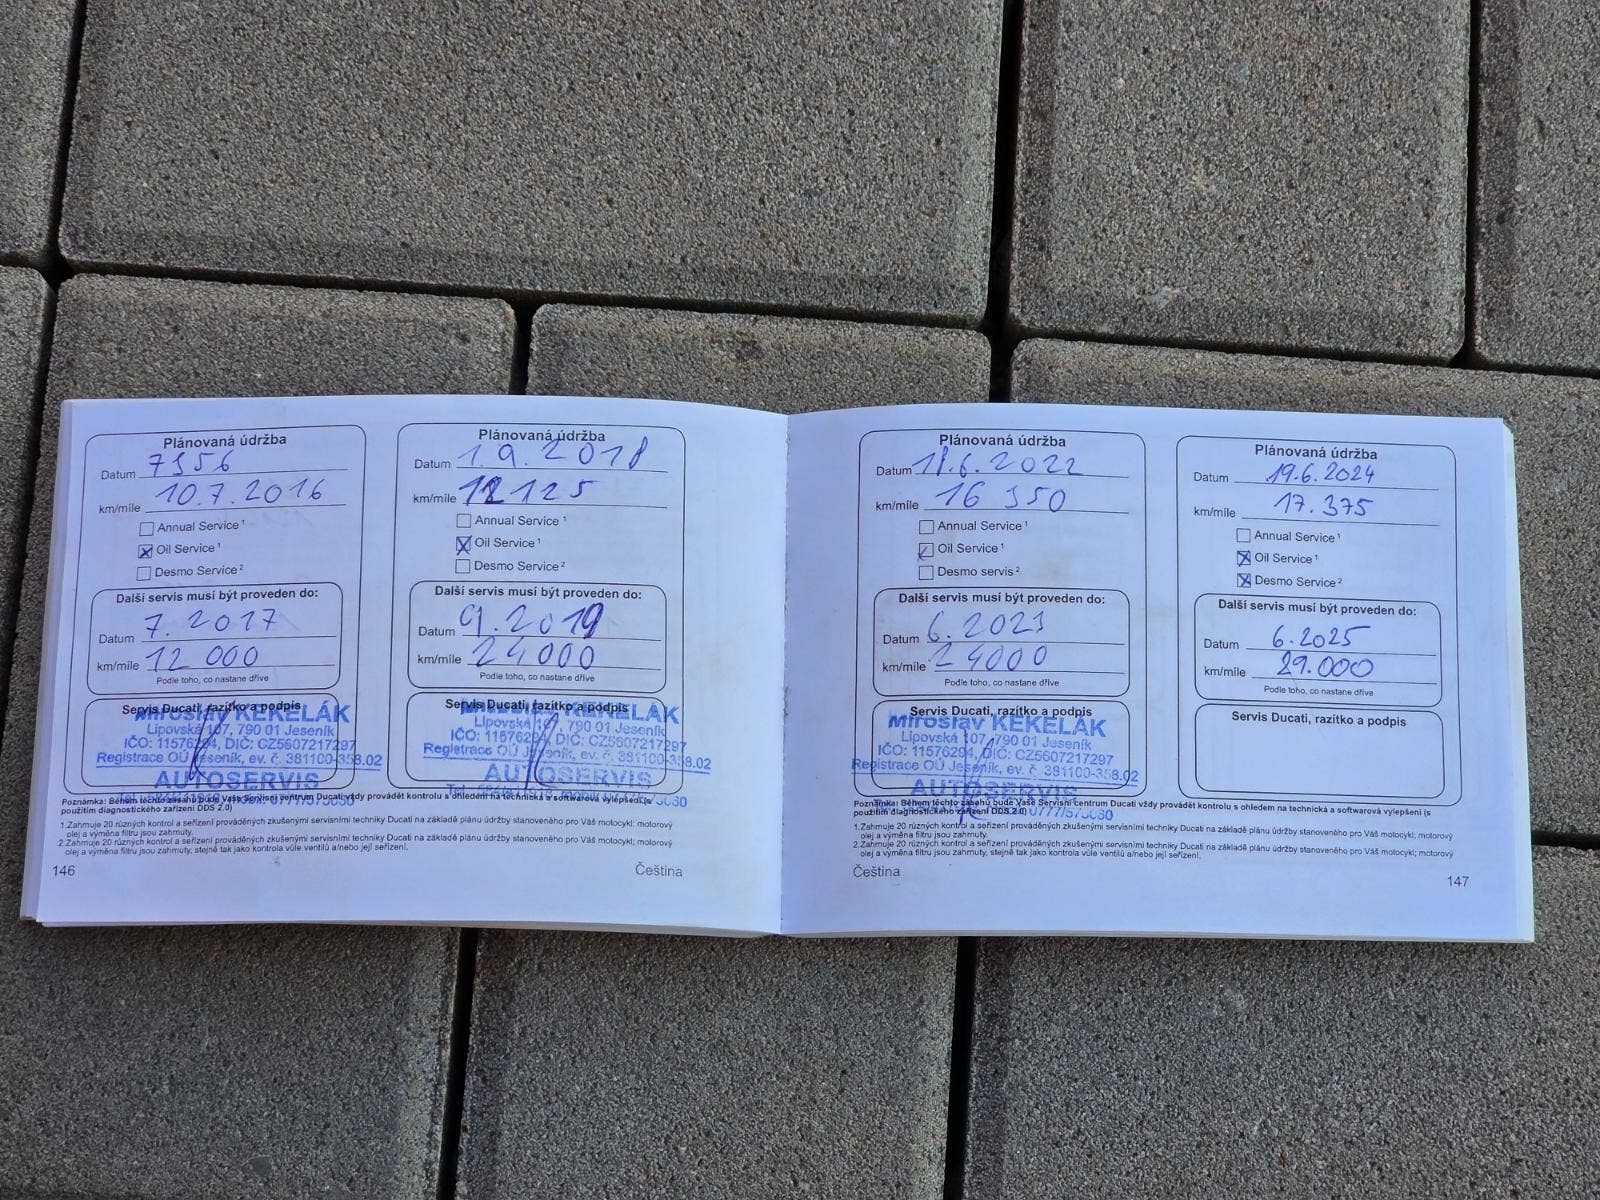 Plánovaná údržba
Datum 7956
km/mile 10.7.2016
Annual Service ¹
Oil Service ¹
Desmo Service ²
Další servis musí být proveden do:
Datum 7.2017
km/mile 12 000
Podle toho, co nastane dříve
Servis Ducati, razítko a podpis
Miroslav KEKELÁK
Lipovská 107, 790 01 Jeseník
IČO: 11576294, DIČ: CZ5607217297
Registrace OÚ Jeseník, ev. č. 381100-358.02
AUTOSERVIS
Plánovaná údržba
Datum 1.9.2018
km/mile 12125
Annual Service ¹
Oil Service ¹
Desmo Service ²
Další servis musí být proveden do:
Datum 9.2019
km/mile 24000
Podle toho, co nastane dříve
Servis Ducati, razítko a podpis
KEKELÁK
Lipovská 107, 790 01 Jeseník
IČO: 11576294, DIČ: CZ5607217297
Registrace OÚ Jeseník, ev. č. 381100-358.02
AUTOSERVIS
Poznámka: Během těchto zásahů bude Vaše Servisní centrum Ducati vždy provádět kontrolu s ohledem na technická a softwarová vylepšení (s
použitím diagnostického zařízení DDS 2.0)
1.Zahrnuje 20 různých kontrol a seřízení prováděných zkušenými servisními techniky Ducati na základě plánu údržby stanoveného pro Váš motocykl; motorový
olej a výměna filtru jsou zahrnuty.
2.Zahrnuje 20 různých kontrol a seřízení prováděných zkušenými servisními techniky Ducati na základě plánu údržby stanoveného pro Váš motocykl; motorový
olej a výměna filtru jsou zahrnuty, stejně tak jako kontrola vůle ventilů a/nebo její seřízení.
146
Čeština
Plánovaná údržba
Datum 18.6.2022
km/mile 16 350
Annual Service ¹
Oil Service ¹
Desmo servis ²
Další servis musí být proveden do:
Datum 6.2023
km/mile 24000
Podle toho, co nastane dříve
Servis Ducati, razítko a podpis
Miroslav KEKELÁK
Lipovská 107, 790 01 Jeseník
IČO: 11576294, DIČ: CZ5607217297
Registrace OÚ Jeseník, ev. č. 381100-358.02
AUTOSERVIS
Plánovaná údržba
Datum 19.6.2024
km/mile 17.375
Annual Service ¹
Oil Service ¹
Desmo Service ²
Další servis musí být proveden do:
Datum 6.2025
km/mile 29.000
Podle toho, co nastane dříve
Servis Ducati, razítko a podpis
Poznámka: Během těchto zásahů bude Vaše Servisní centrum Ducati vždy provádět kontrolu s ohledem na technická a softwarová vylepšení (s
použitím diagnostického zařízení DDS 2.0)
1.Zahrnuje 20 různých kontrol a seřízení prováděných zkušenými servisními techniky Ducati na základě plánu údržby stanoveného pro Váš motocykl; motorový
olej a výměna filtru jsou zahrnuty.
2.Zahrnuje 20 různých kontrol a seřízení prováděných zkušenými servisními techniky Ducati na základě plánu údržby stanoveného pro Váš motocykl; motorový
olej a výměna filtru jsou zahrnuty, stejně tak jako kontrola vůle ventilů a/nebo její seřízení.
Čeština
147